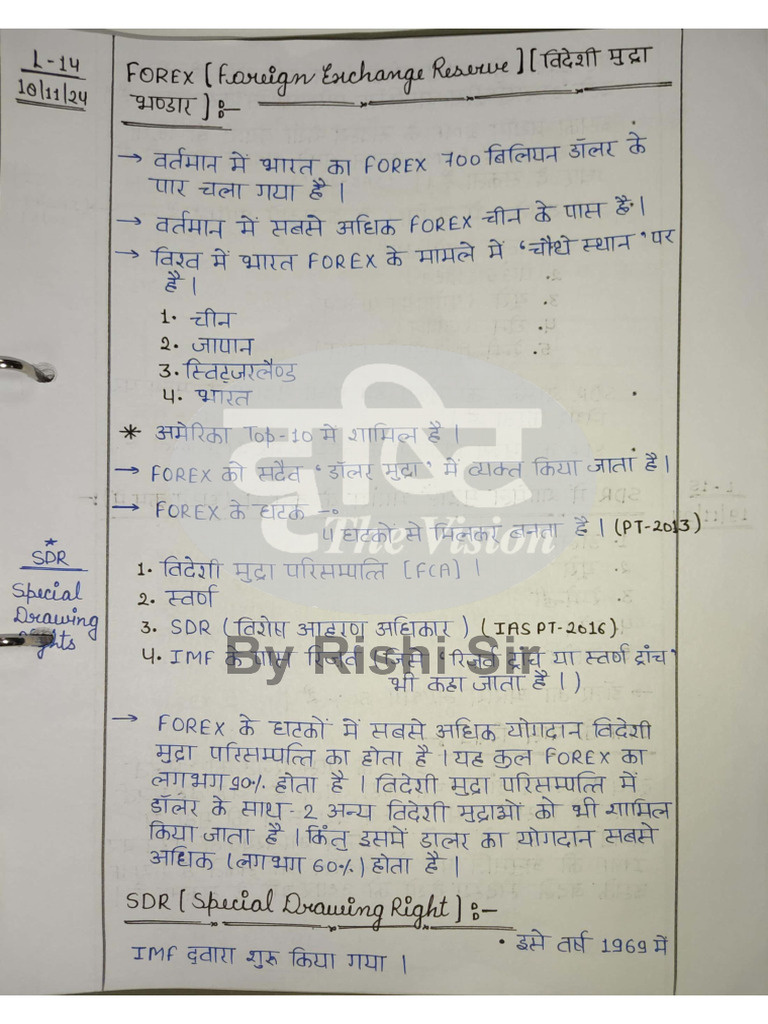 L-14
10/11/24
FOREX [Foreign Exchange Reserve] [विदेशी मुद्रा
भण्डार] :-
→ वर्तमान में भारत का FOREX 700 बिलियन डॉलर के
पार चला गया है।
→ वर्तमान में सबसे अधिक FOREX चीन के पास है।
→ विश्व में भारत FOREX के मामले में 'चौथे स्थान' पर
है।
1. चीन
2. जापान
3. स्विट्जरलैण्ड
4. भारत
* अमेरिका Top-10 में शामिल है।
→ FOREX को सदैव 'डॉलर मुद्रा' में व्यक्त किया जाता है।
→ FOREX के घटक -:
4 घटकों से मिलकर बनता है। (PT-2013)
1. विदेशी मुद्रा परिसम्पत्ति [FCA]।
2. स्वर्ण
3. SDR (विशेष आहरण अधिकार) (IAS PT-2016)
4. IMF के पास रिजर्व (जिसे 'रिजर्व ट्रांच या स्वर्ण ट्रांच'
भी कहा जाता है।)
*
SDR
Special
Drawing
Rights
→ FOREX के घटकों में सबसे अधिक योगदान विदेशी
मुद्रा परिसम्पत्ति का होता है। यह कुल FOREX का
लगभग 90% होता है। विदेशी मुद्रा परिसम्पत्ति में
डॉलर के साथ-2 अन्य विदेशी मुद्राओं को भी शामिल
किया जाता है। किंतु इसमें डालर का योगदान सबसे
अधिक (लगभग 60%) होता है।
SDR [Special Drawing Right] :-
• इसे वर्ष 1969 में
IMF द्वारा शुरू किया गया।
दृष्टि
The Vision
By Rishi Sir